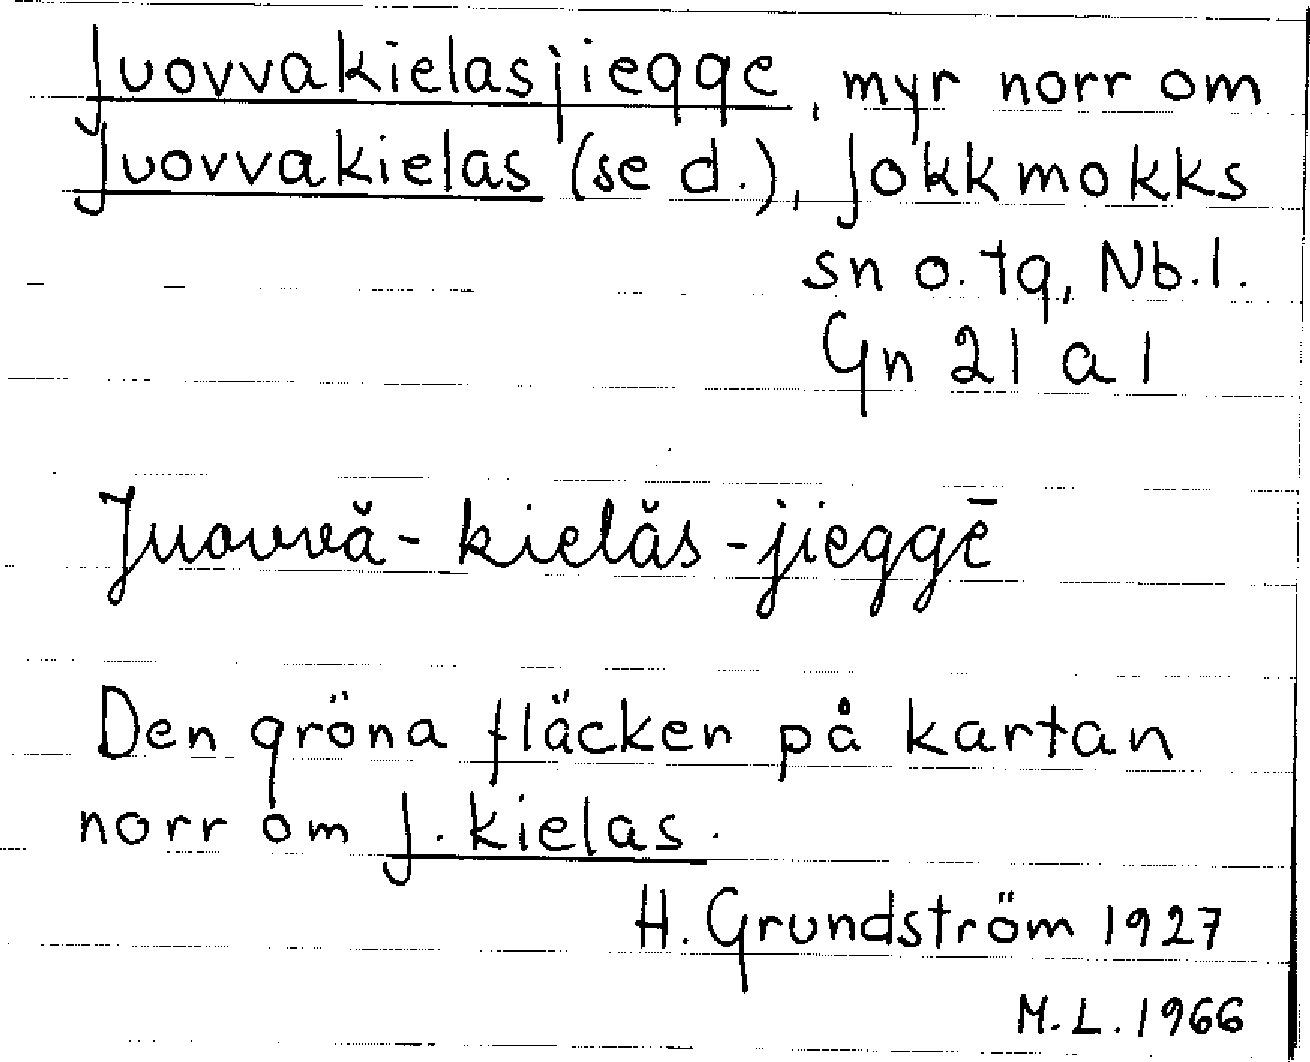 Juovvakielasjiegge, myr norr om
Juovvakielas (se d.), Jokkmokks
sn o. tg, Nb.l.
Gn 21 a 1
Juovvă-kielăs-jieggē
Den gröna fläcken på kartan
norr om J. kielas.
H. Grundström 1927
M.L. 1966